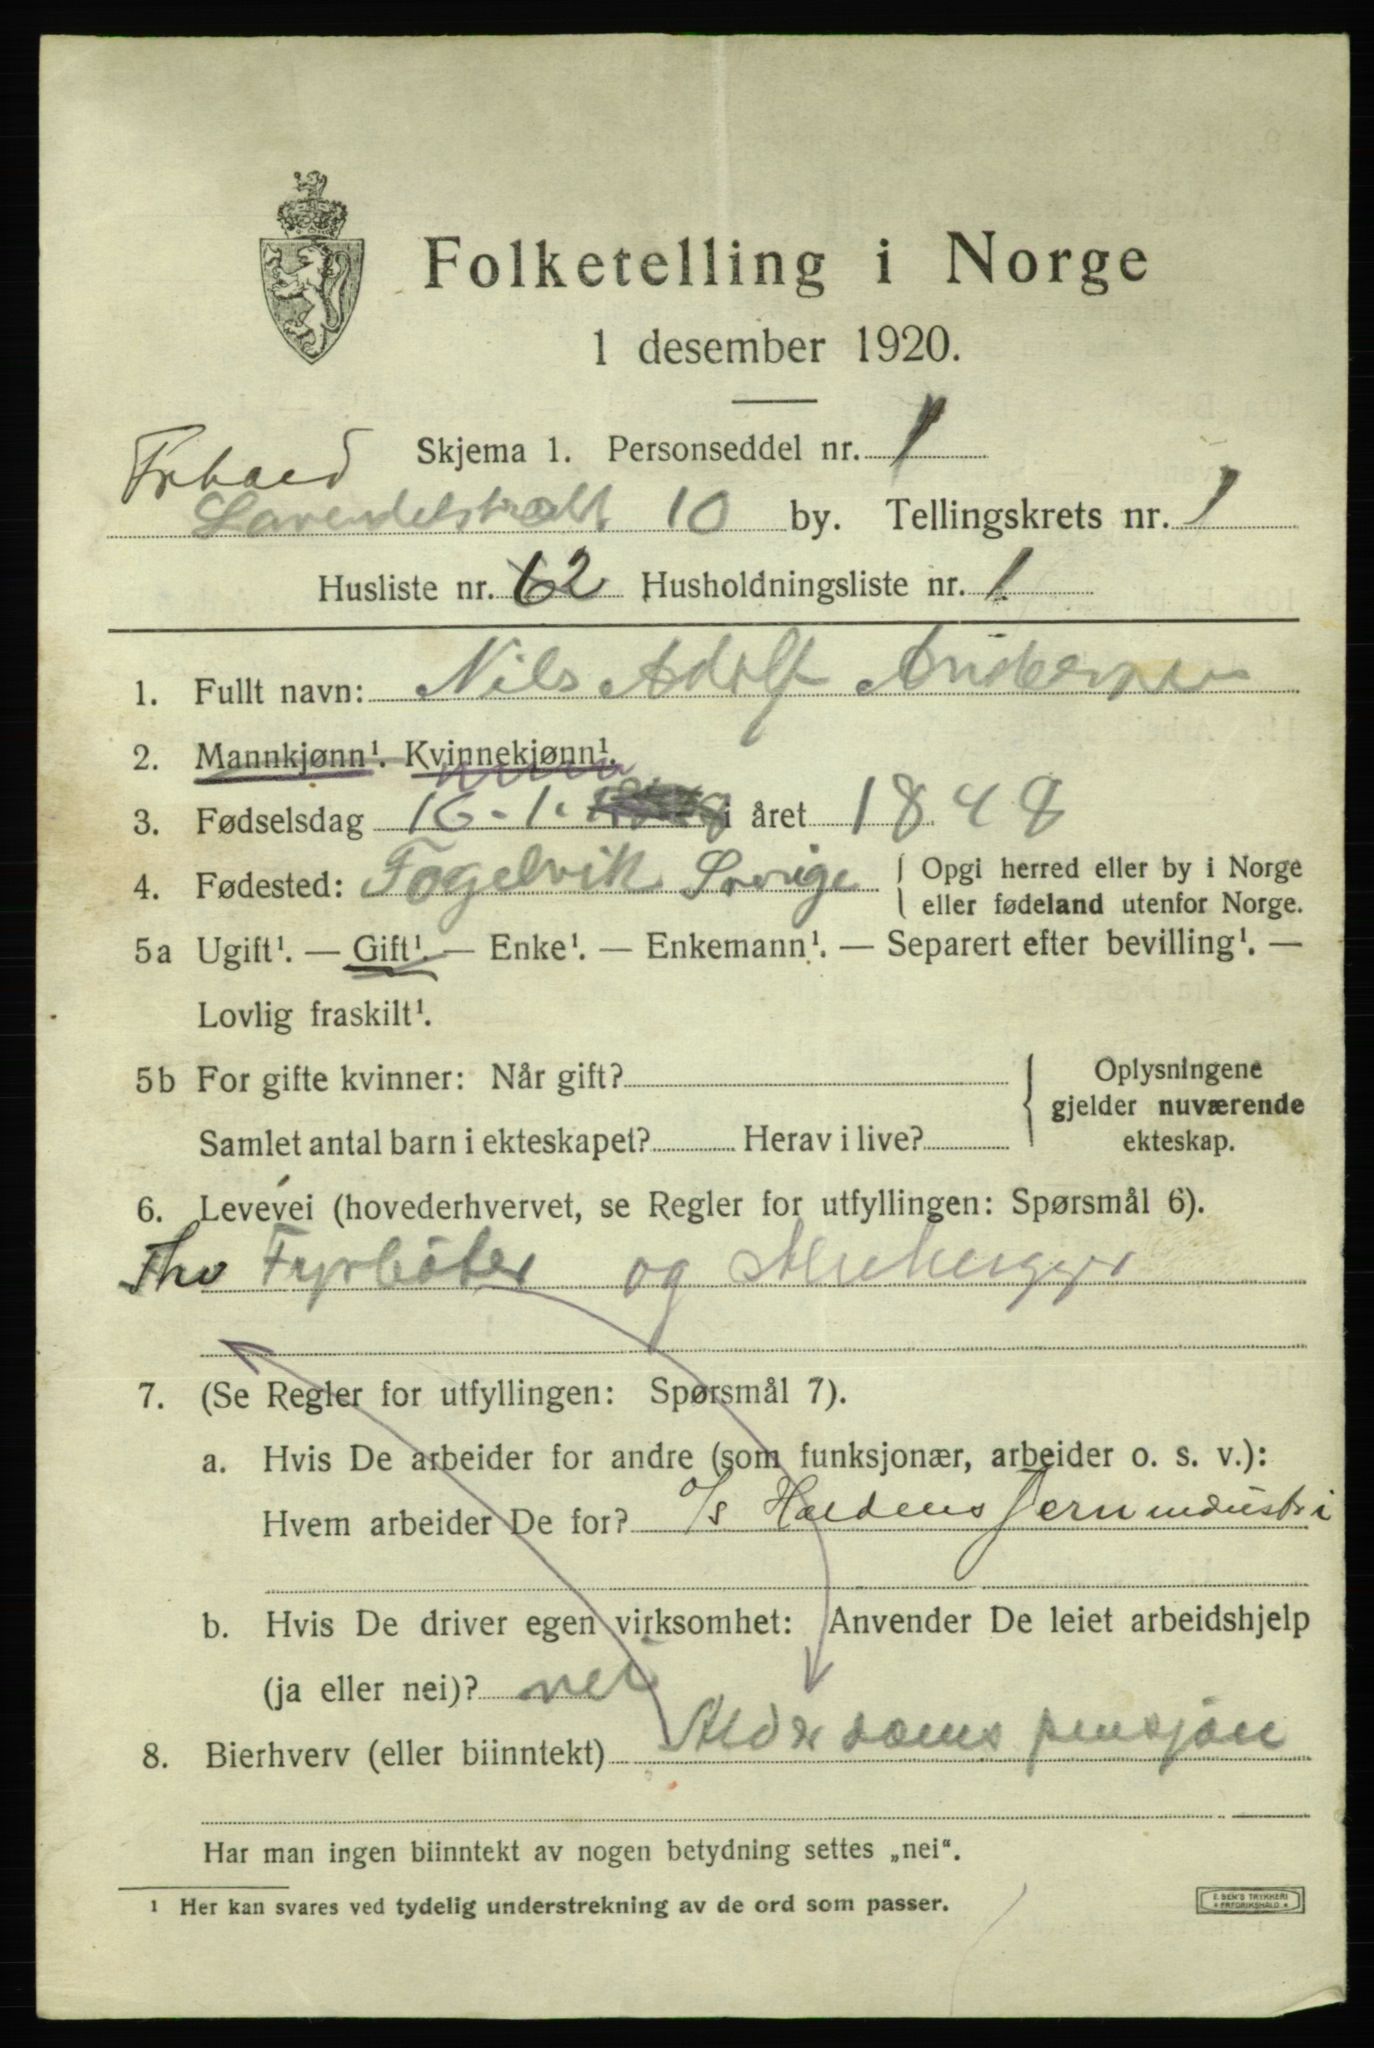 Folketelling i Norge
1 desember 1920.
Skjema 1. Personseddel nr. 1
Frhald
10 by. Tellingskrets nr. 1
Husliste nr. 62 Husholdningsliste nr. 1
1. Fullt navn: Nils Adolf Andersen
2. Mannkjønn¹. Kvinnekjønn¹.
3. Fødselsdag 16-1. i året 1848
4. Fødested: Fogelvik Sverige { Opgi herred eller by i Norge
eller fødeland utenfor Norge.
5a Ugift¹. — Gift¹. — Enke¹. — Enkemann¹. — Separert efter bevilling¹. —
Lovlig fraskilt¹.
5b For gifte kvinner: Når gift? { Oplysningene
gjelder nuværende
Samlet antal barn i ekteskapet? Herav i live? ekteskap.
6. Levevei (hovederhvervet, se Regler for utfyllingen: Spørsmål 6).
Fyrböter og
7. (Se Regler for utfyllingen: Spørsmål 7).
a. Hvis De arbeider for andre (som funksjonær, arbeider o. s. v.):
Hvem arbeider De for? A/S Haldens Jernindustri
b. Hvis De driver egen virksomhet: Anvender De leiet arbeidshjelp
(ja eller nei)? nei
8. Bierhverv (eller biinntekt) Alderdoms pensjon
Har man ingen biinntekt av nogen betydning settes „nei“.
¹ Her kan svares ved tydelig understrekning av de ord som passer.
E. SEM'S TRYKKERI
FREDRIKSHALD